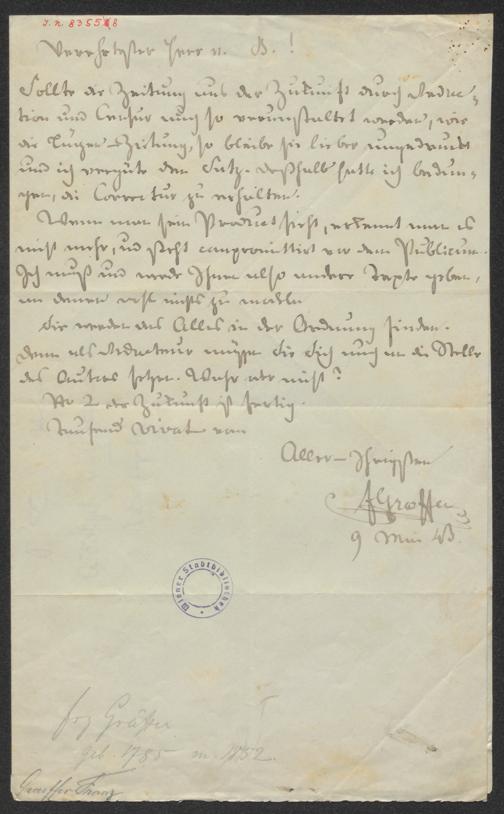 J.N. 835558
Verehrtester Herr v. B.!
Sollte die Zeitung aus der Zukunft durch Redac-
tion und Censur auch so verunstaltet werden, wie
die Zeitung, so bleibe sie lieber ungedruckt
und ich vergüte den Satz. Deßhalb hatte ich bedun-
gen, die Correctur zu erhalten.
Wenn man sein Product sieht, erkennt man es
nicht mehr, und steht compromittirt vor dem Publicum.
Ich muß und werde Ihnen also andere Texte geben,
an denen nichts zu
Sie werden das Alles in der Ordnung finden.
Denn als Redacteur müssen Sie Sich auch an die Stelle
des Autors setzen. Wahr oder nicht?
Nr 2 der Zukunft ist fertig.
Tausend Vivat vom
Aller-Ihrigsten
FGraeffer
9 Mai 43
Wiener Stadtbibliothek
Frz Gräffer
geb. 1785 m. 1852.
Graeffer Franz